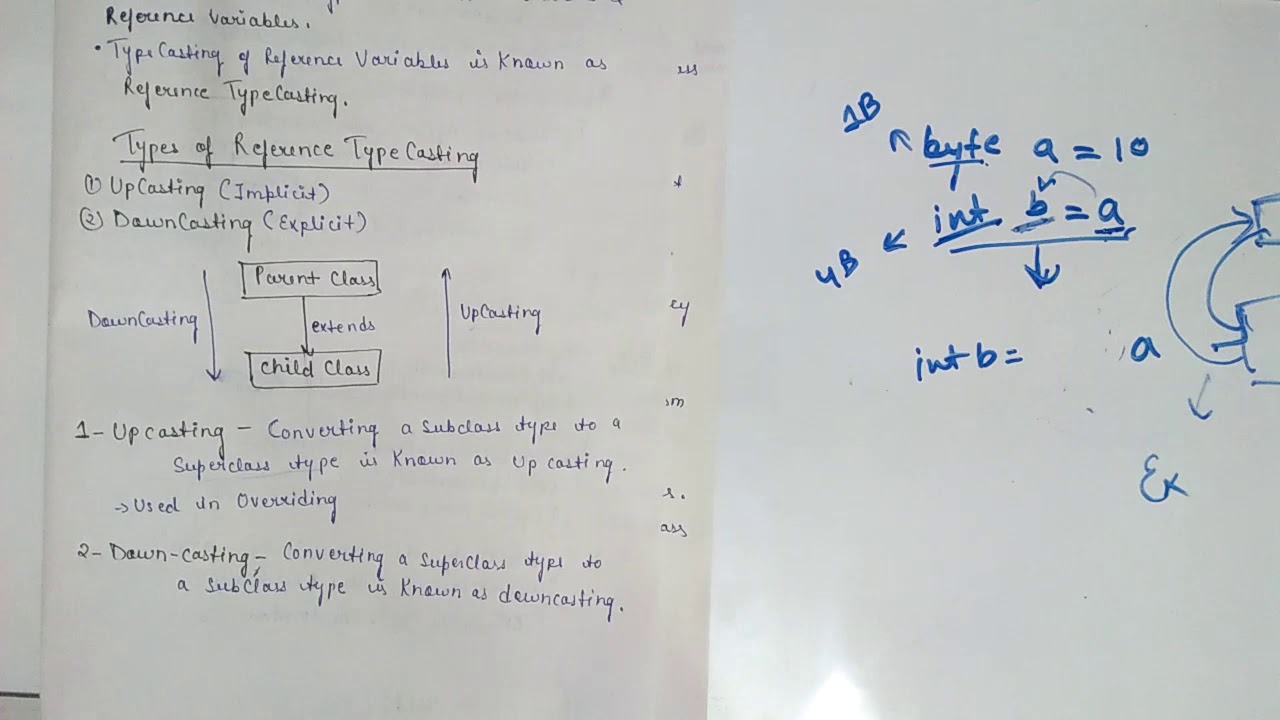 Reference Variables.
• TypeCasting of Reference Variables is Known as
Reference TypeCasting.
Types of Reference TypeCasting
① UpCasting (Implicit)
② DownCasting (Explicit)
Parent Class
DownCasting
extends
UpCasting
Child Class
1- Upcasting - Converting a subclass type to a
Superclass type is Known as Up casting.
→ Used in Overriding
2- Down-casting - Converting a superclass type to
a subclass type is Known as downcasting.
ess
t
ey
sm
s.
ass
1B
byte a = 10
int b = a
4B
int b = a
Ex